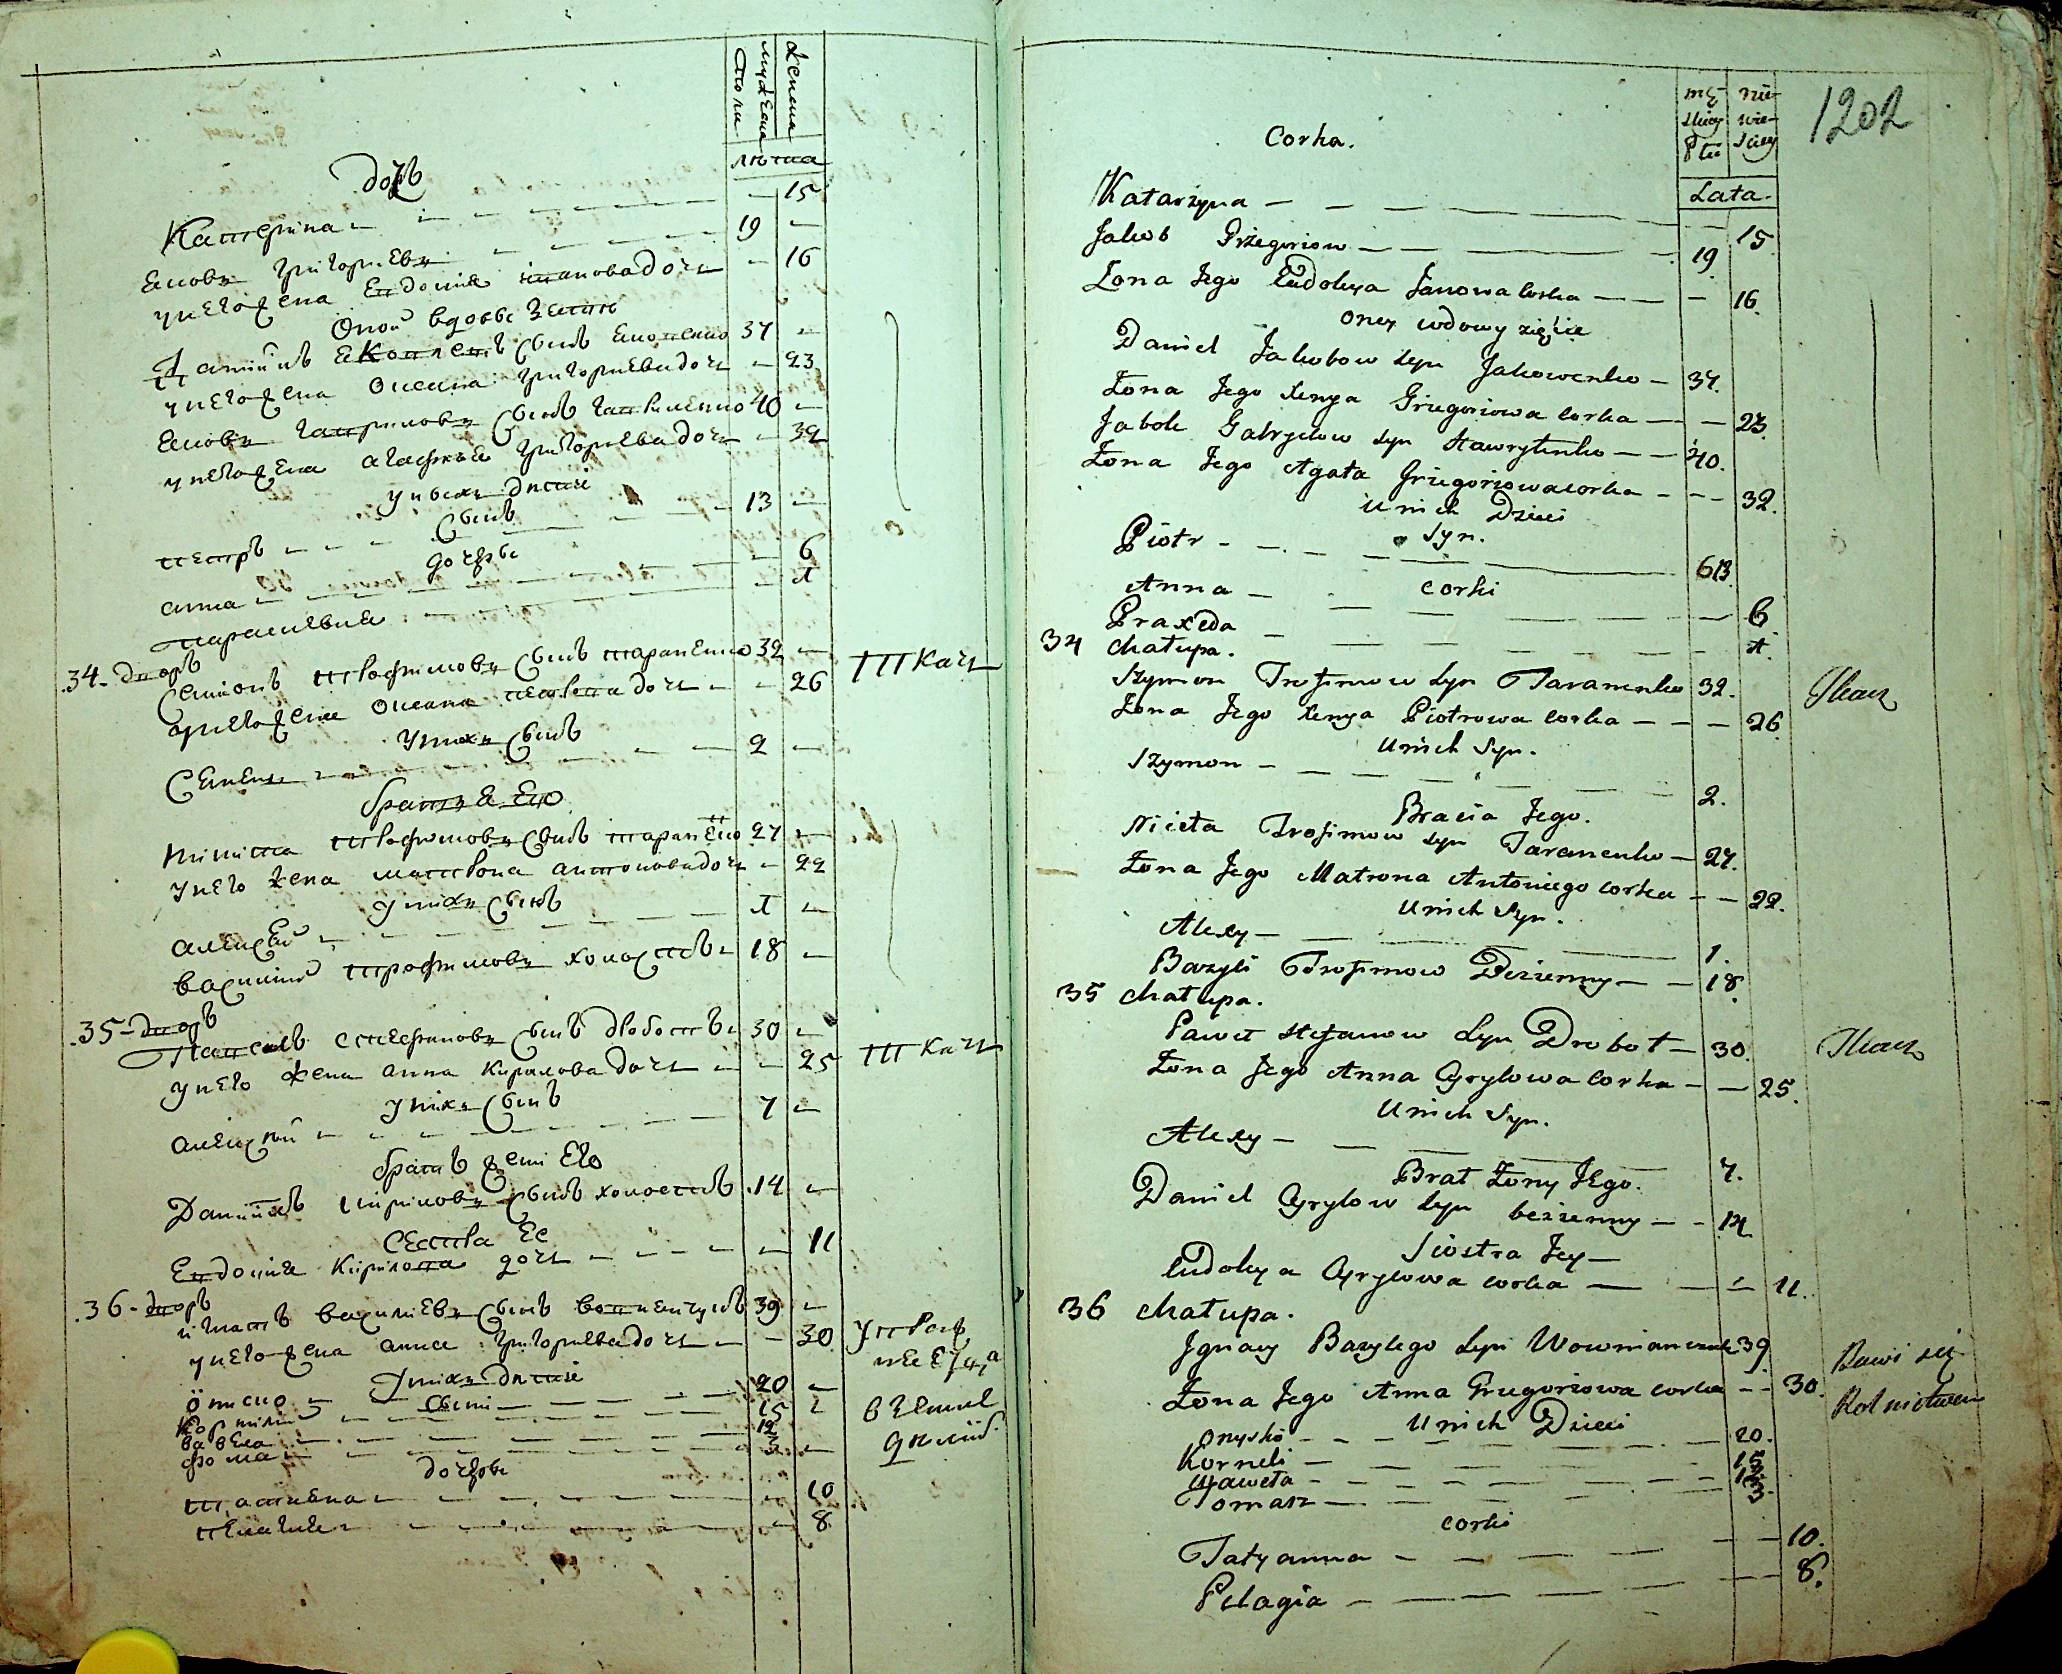 мужеска полу
женска
лѣта
дочь
Катерина 15
яковъ григорьевъ 19
у него жена Евдокия иванова дочь 16
Оной вдовы зятья
Даниилъ яковлевъ сынъ яковенко 37
у него жена Оксана григорьева дочь 23
яковъ гавриловъ сынъ гавриленко 40
у него жена агафия григорьева дочь 32
у нихъ дети
сынъ
петръ 13
дочери
анна 6
парасковия 1
34 дворъ
Симонъ трофимовъ сынъ тараненко 32 ткачъ
у него жена Оксана петрова дочь 26
у нихъ сынъ
Семенъ 2
братья Его
никита трофимовъ сынъ тараненко 27
у него жена матрона антонова дочь 22
у нихъ сынъ
алексей 1
василий трофимовъ холостъ 18
35 дворъ
Павелъ стефановъ сынъ дроботъ 30 ткачъ
у него жена анна кирилова дочь 25
у нихъ сынъ
алексей 7
братъ жени Его
Даниилъ кириловъ сынъ холостъ 14
сестра Ее
Евдокия кирилова дочь 11
36 дворъ
игнатъ василиевъ сынъ 39
у него жена анна григориева дочь 30
у нихъ дети
сыни
ониско 20
корнилий 15
вавила 12
фома 3
дочери
татияна 10
пелагия 8
1202
mę-skiey Płci
nie-wie-sciey
Lata
Corka.
Katarzyna 15
Jakob Grzegoriow 19.
Zona Jego Eudokya Janowa Corka 16.
oney wdowy zięcie
Daniel Jakobow syn Jakowenko 37.
Zona Jego Xenya Gregoriowa corka 23.
Jakob Gabryelow syn Hawrylenko 40.
Zona Jego Agata Gregoriowa corka 32.
U nich Dzieci
Syn.
Piotr 13
Corki
Anna 6
Praxeda 1.
34 Chałupa.
Szymon Trofimow Syn Taranenko 32. Tkacz
Zona Jego Xenya Piotrowa corka 26.
U nich Syn.
Szymon 2.
Bracia Jego.
Nicita Trofimow syn Taranenko 27.
Zona Jego Matrona Antoniego corka 22.
U nich Syn.
Alexy 1.
Bazyli Trofimow Bezzenny 18.
35 Chałupa.
Paweł Stefanow Syn Drobot 30. Tkacz
Zona Jego Anna Cyrylowa corka 25.
U nich Syn.
Alexy 7.
Brat Zony Jego.
Daniel Cyrylow syn bezzenny 14
Siostra Jey
Eudokya Cyrylowa corka 11.
36 Chałupa.
Jgnacy Bazylego Syn Wownianczuk 39. Bawi się Rolnictwem
Zona Jego Anna Gregoriowa corka 30.
U nich Dzieci
Onysko 20.
Korneli 15
Waweła 12
Tomasz 3
Corki
Tatyanna 10.
Pelagia 8.